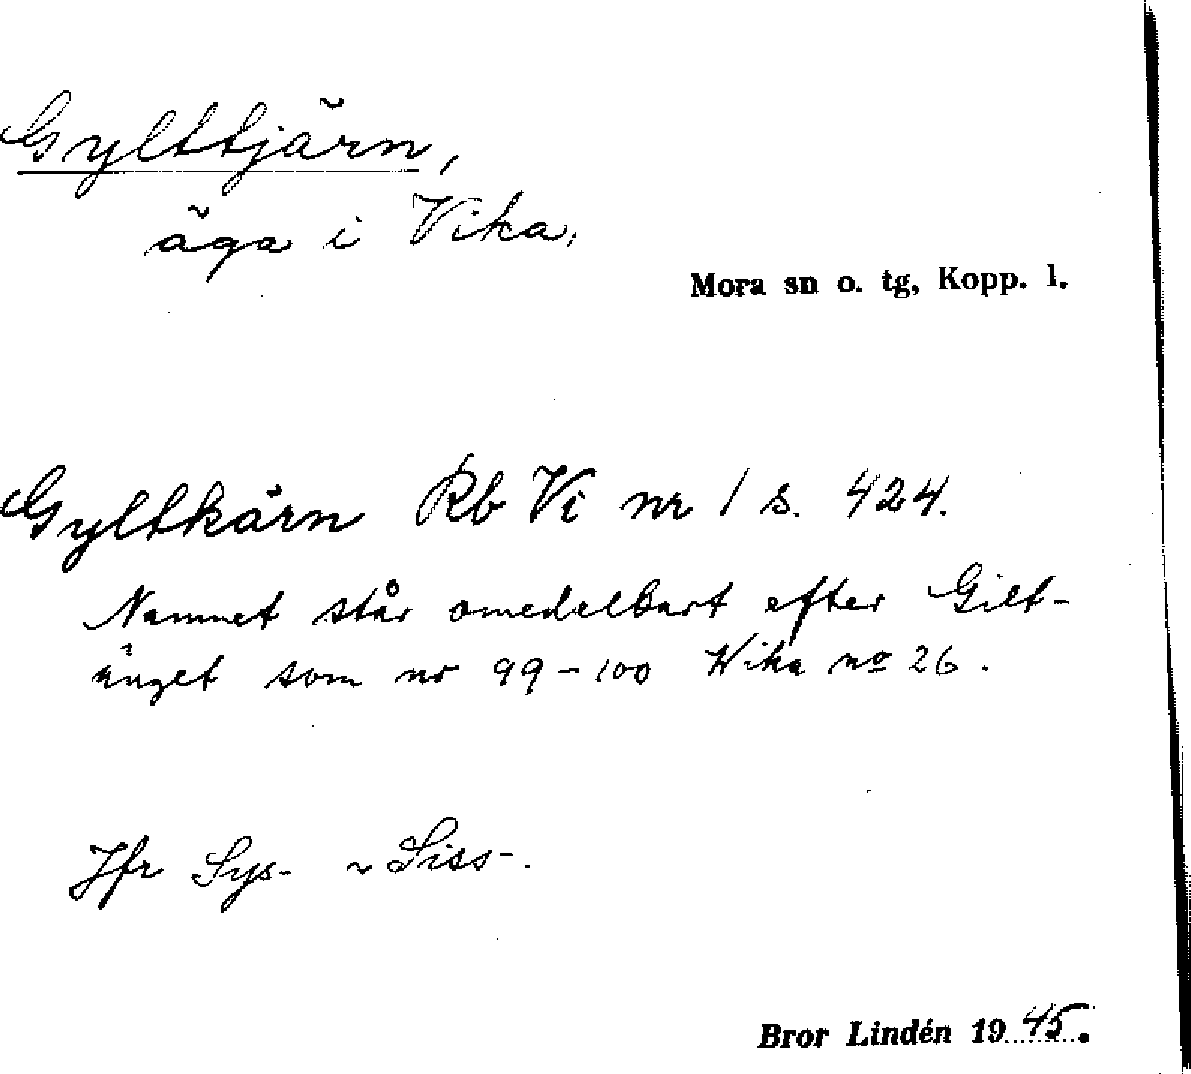 Gylttjärn,
äga i Vika,
Mora sn o. tg, Kopp. l.
Gyltkärn Rb Vi nr 1 s. 424.
Namnet står omedelbart efter Gilt-
änget som nr 99-100 Wika no 26.
Jfr Sys- ~ Siss-.
Bror Lindén 1945.